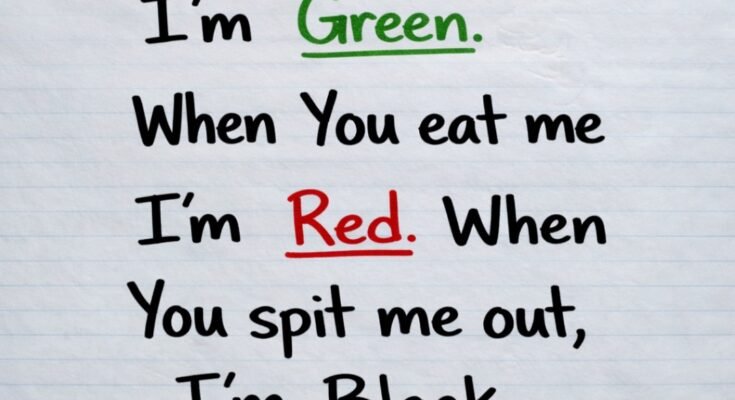 I'm Green.
When You eat me
I'm Red. When
You spit me out,
I'm Black